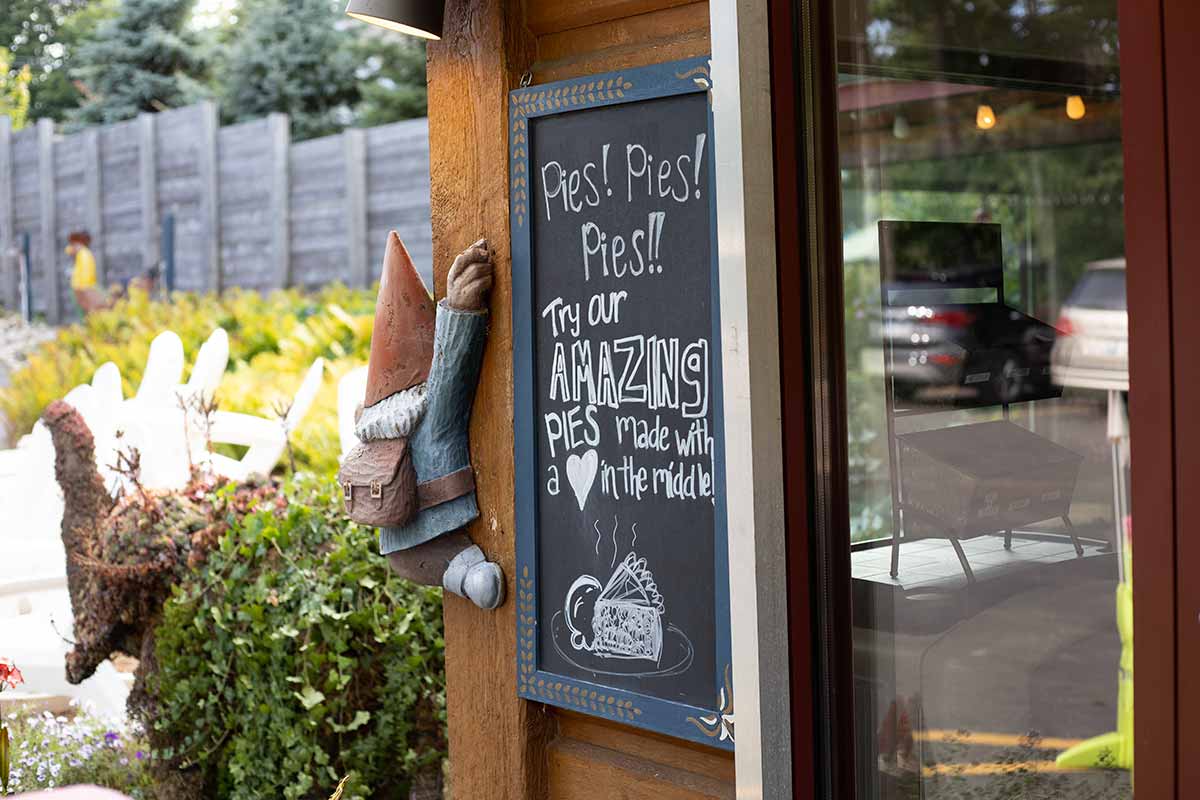 Pies! Pies!
Pies!!
Try our
AMAZINg
PIES made with
a ♡ in the middle!